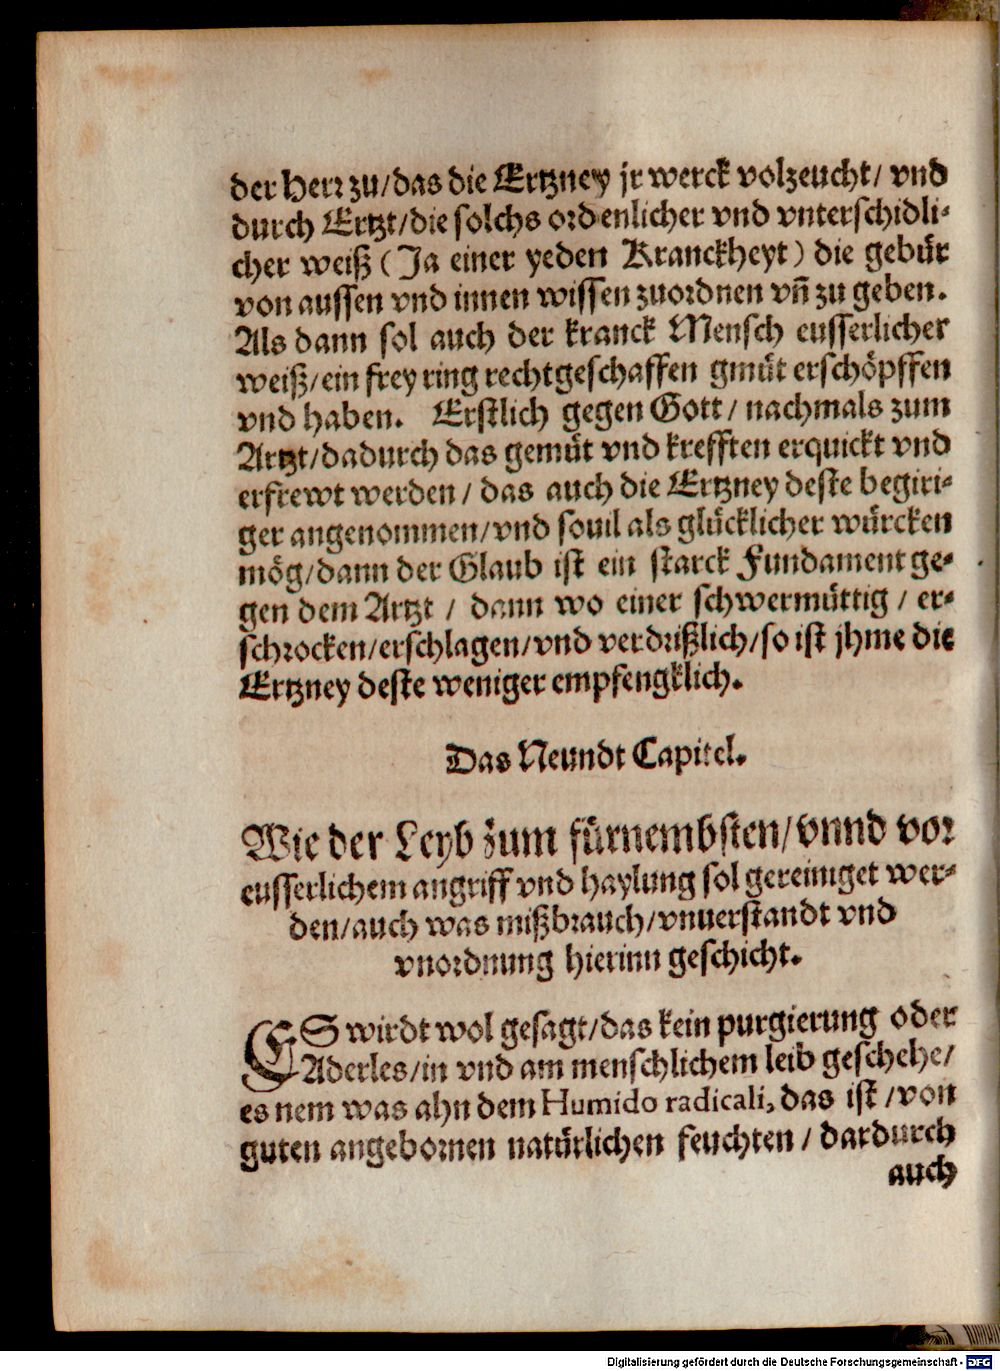 der Herr zu/das die Ertzney jr werck volzeucht/ vnd
durch Ertzt/die solchs ordenlicher vnd vnterschidli-
cher weiß (Ja einer yeden Kranckheyt) die gebür
von aussen vnd innen wissen zuordnen vñ zu geben.
Als dann sol auch der kranck Mensch eusserlicher
weiß/ein frey ring rechtgeschaffen gmüt erschöpffen
vnd haben. Erstlich gegen Gott/ nachmals zum
Artzt/dadurch das gemüt vnd krefften erquickt vnd
erfrewt werden/ das auch die Ertzney deste begiri-
ger angenommen/vnd souil als glücklicher würcken
mög/dann der Glaub ist ein starck Fundament ge-
gen dem Artzt / dann wo einer schwermüttig / er-
schrocken/erschlagen/vnd verdrißlich/so ist jhme die
Ertzney deste weniger empfengklich.
Das Neundt Capitel.
Wie der Leyb zum fürnembsten/vnnd vor
eusserlichem angriff vnd haylung sol gereiniget wer-
den/auch was mißbrauch/vnuerstandt vnd
vnordnung hierinn geschicht.
ES wirdt wol gesagt/das kein purgierung oder
Aderles/in vnd am menschlichem leib geschehe/
es nem was ahn dem Humido radicali, das ist /von
guten angebornen natürlichen feuchten / dardurch
auch
Digitalisierung gefördert durch die Deutsche Forschungsgemeinschaft - DFG